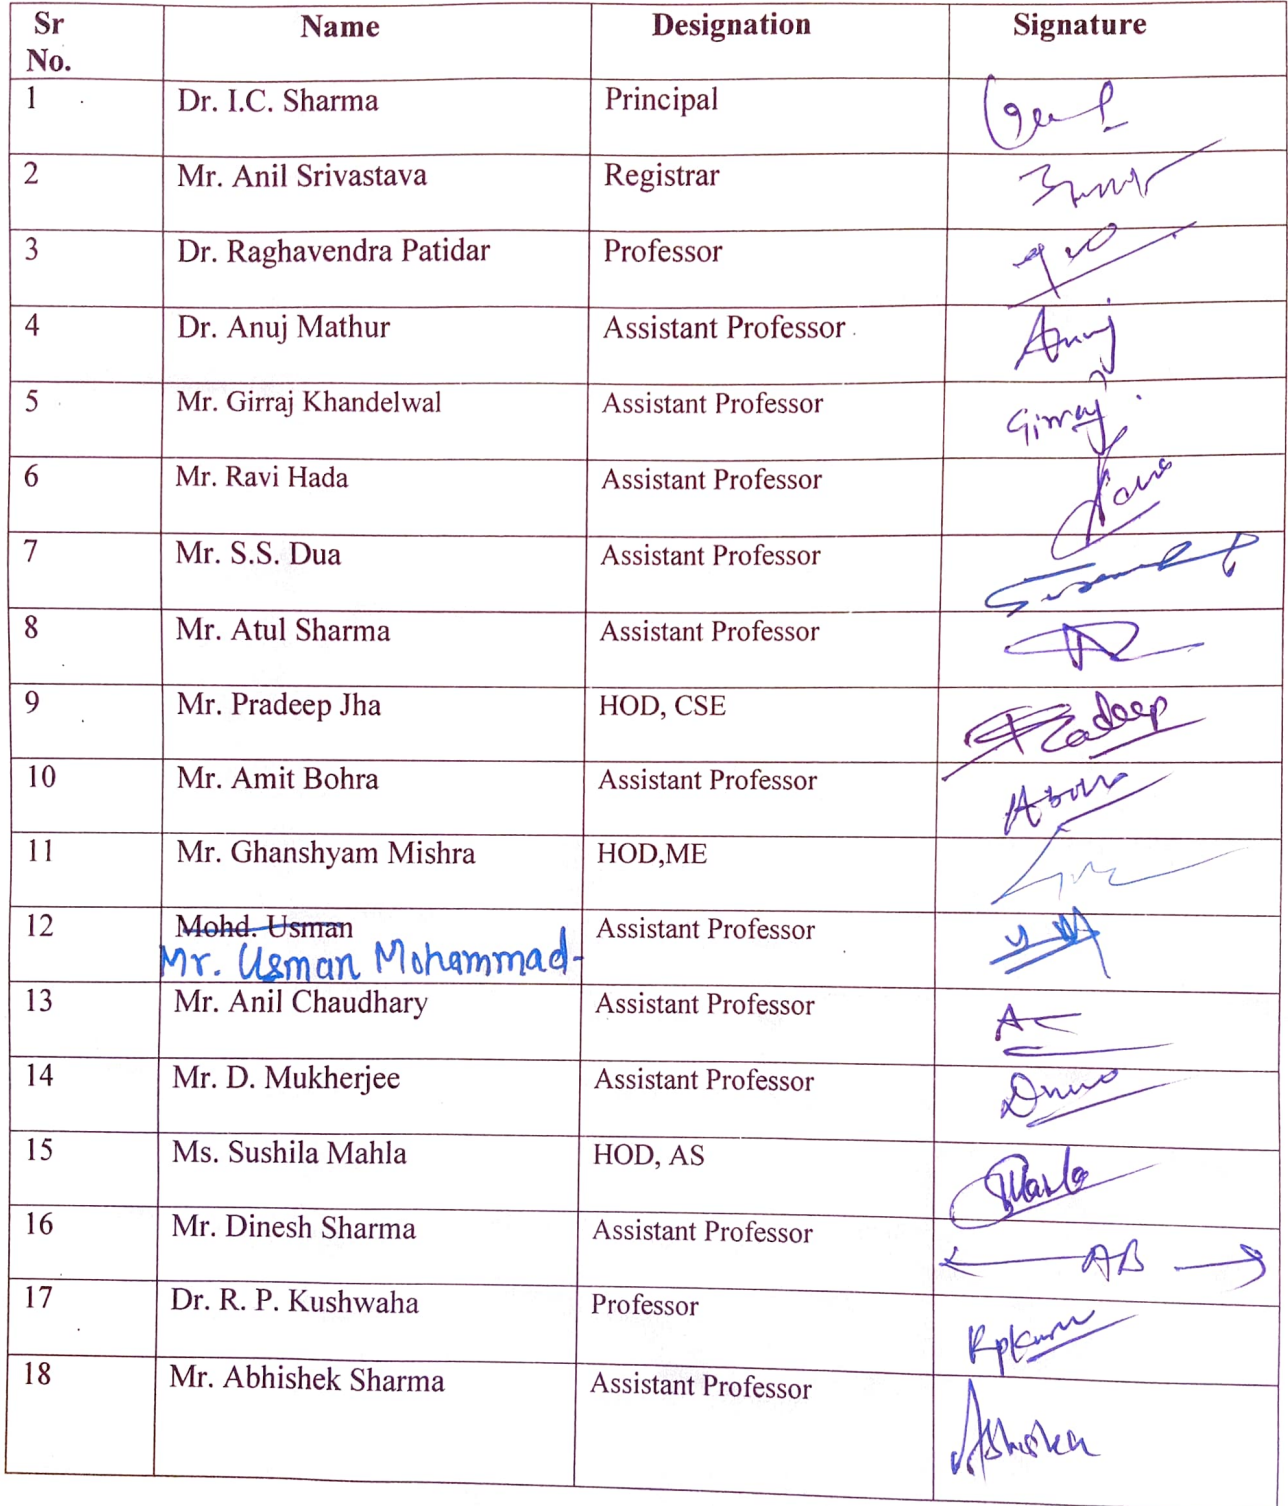 Sr No. Name Designation Signature
1 Dr. I.C. Sharma Principal
2 Mr. Anil Srivastava Registrar
3 Dr. Raghavendra Patidar Professor
4 Dr. Anuj Mathur Assistant Professor Anuj
5 Mr. Girraj Khandelwal Assistant Professor Girraj
6 Mr. Ravi Hada Assistant Professor
7 Mr. S.S. Dua Assistant Professor
8 Mr. Atul Sharma Assistant Professor
9 Mr. Pradeep Jha HOD, CSE Pradeep
10 Mr. Amit Bohra Assistant Professor
11 Mr. Ghanshyam Mishra HOD,ME
12 Mohd. Usman Assistant Professor
Mr. Usman Mohammad-
13 Mr. Anil Chaudhary Assistant Professor
14 Mr. D. Mukherjee Assistant Professor
15 Ms. Sushila Mahla HOD, AS
16 Mr. Dinesh Sharma Assistant Professor AB
17 Dr. R. P. Kushwaha Professor
18 Mr. Abhishek Sharma Assistant Professor